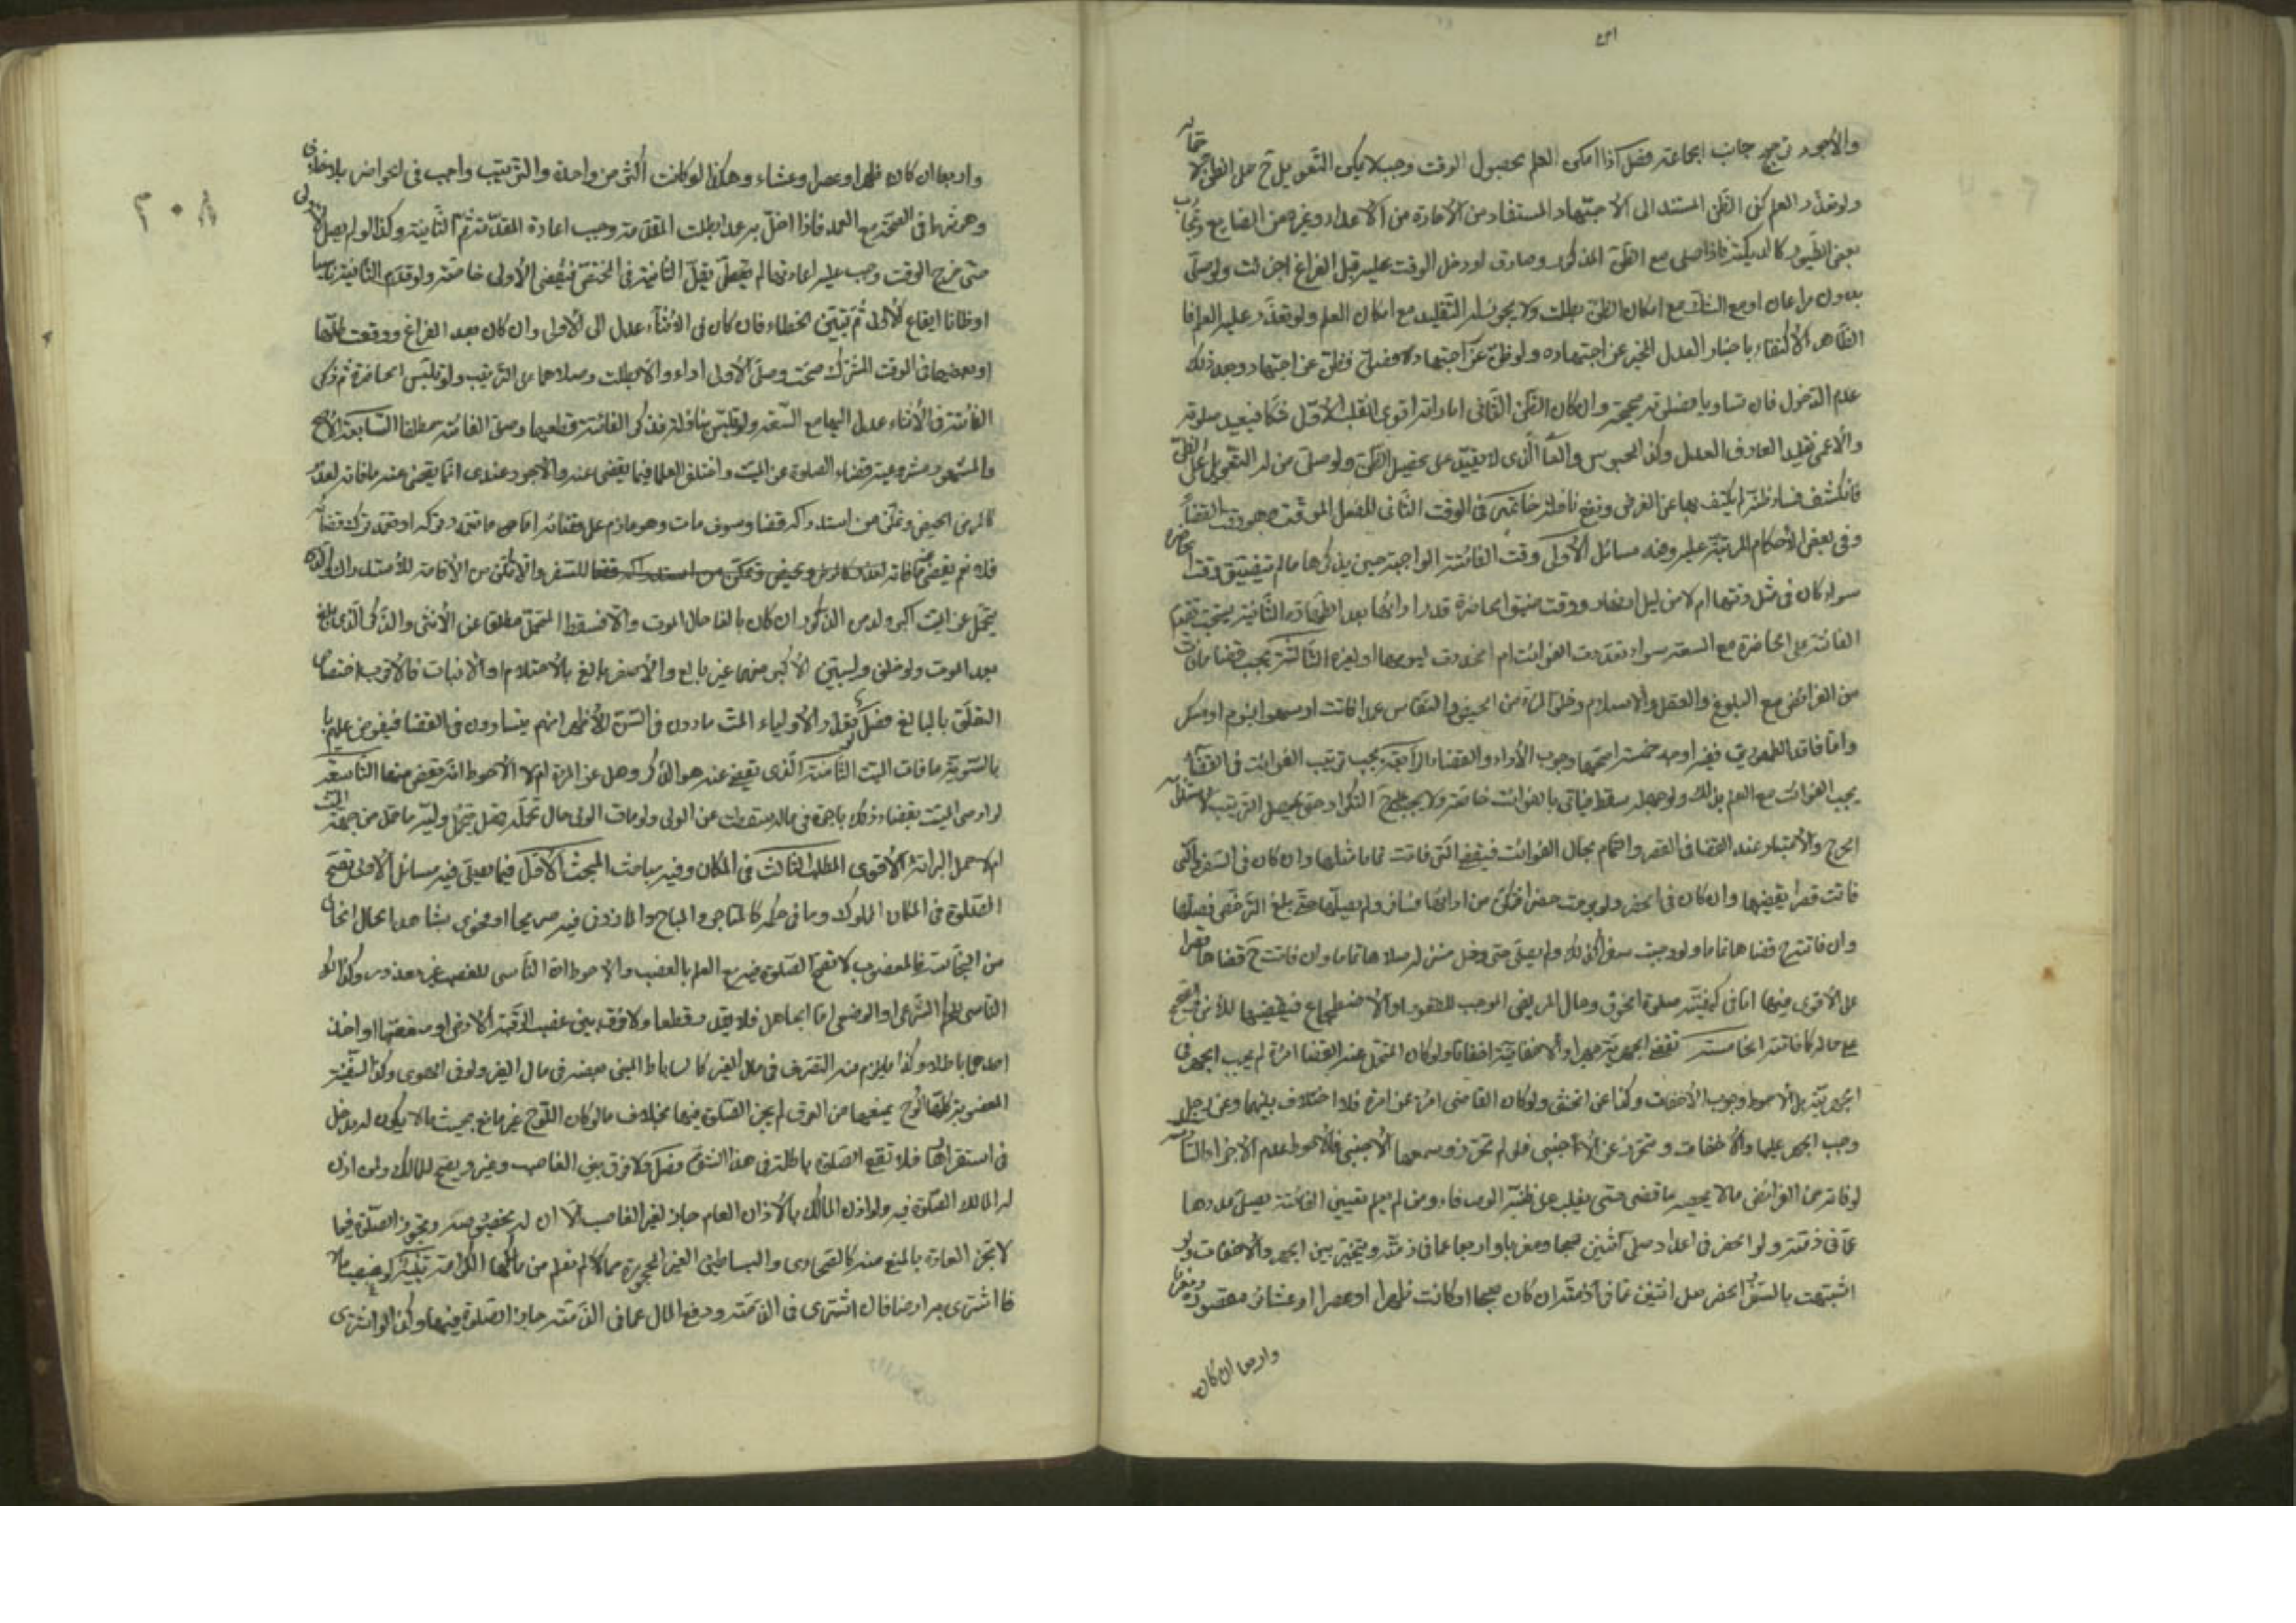 والأجود ترجيح جانب الجماعة فصل اذا امكن العلم بحصول الوقت وجب ولا يكفى التعويل ح على الظن
ولو تعذر العلم كفى الظن المستند الى الاجتهاد المستفاد من الأمارة من الأعداد وغيره من الصنايع وتجاوب
بعض الطيور كالديكة فاذا صلى مع الظن المذكور وصادف او دخل الوقت عليه قبل الفراغ اجزئت ولو صلى
بدون مراعات او مع الشك مع امكان الظن بطلت ولا يجوز له التقليد مع امكان العلم ولو تعذر عليه العلم فا
الظاهر الاكتفاء باخبار العدل المخبر عن اجتهاده ولو ظن عن اجتهاد فصلى فظن عن اجتهاد وجد ذلك
عدم الدخول فان تساويا فصلوته صحيحة وان كان الظن الثانى امارته اقوى انقلب الأول شكا فيعيد صلوته
والأعمى تقليد العارف العدل وكذا المحبوس والعامى الذى لا يقتدر على تحصيل الظن ولو صلى من له التعويل على الظن
فانكشف فساد ظنه لم يكتف بها عن الفرض وتقع نافلة خاتمة فى الوقت الثانى للفعل الموقت وهو وقت القضاء
وفى بعض الأحكام المرتبة عليه وفيه مسائل الأولى وقت الفائتة الواجبة حين يذكرها ما لم يتضيق وقت الحاضرة
سواء كان فى مثل وقتها ام لا من ليل او نهار ووقت ضيق الحاضرة قدر ادائها بعد الطهارة الثانية يستحب تقديم
الفائتة على الحاضرة مع السعة سواء تعددت الفوائت ام اتحدت ليومها او لغيره الثالثة يجب قضاء ما فات
من الفرائض مع البلوغ والعقل والاسلام وخلو المرئة من الحيض والنفاس عمدا فاتت او سهوا او بنوم او سكر
واما فاقد الطهورين ففيه اوجه خمسة اصحها وجوب الأداء والقضاء الرابعة يجب ترتيب الفوائت فى القضاء
بحسب الفوات مع العلم بذلك ولو جهله سقط فياتى بالفوائت خاصة ولا يجب ح التكرار حتى يحصل الترتيب لاستلزامه
الحرج والاعتبار عند القضا فى القصر والتمام بحال الفوائت فيقضى التى فاتت تماما مثلها وان كان فى السفر والتى
فاتت قصرا يقضيها وان كان فى الحضر ولو وجبت حضرا فتمكن من ادائها فسافر ولم يصلها حتى بلغ الترخص فصلها
وان فاتت ح قضاها تماما ولو وجبت سفرا كذلك ولم يصلى حتى دخل منزله صلاها تماما وان فاتت ح قضاها قصرا
على الأقوى فيهما اما فى كيفية صلوة الخوف وحال المريض الموجب للقعود او الاضطجاع فيقضيها للأمن والصحيح
على حاله كما فاتته الخامسة تقضى الجهرية جهرا والاخفاتية اخفاتا ولو كان المتحمل عنه القضا امرئة لم يجب الجهر فى
الجهرية بل الأحوط وجوب الاخفات وكذا عن الخنثى ولو كان القاضى امرئة عن امرئة فلا اختلاف بينهما وعن رجل
وجب الجهر عليها والاخفات وتتحرز عن الاجنبى فلو لم تحرز وسمعها الأجنبى فالأحوط عدم الاجزاء السادسة
لو فاته من الفرائض ما لا يحصيه قضى حتى يغلب على ظنه الوفاء ومن لم يعلم تعيين الفائتة يصلى عددها
عما فى ذمته ولو انحصر فى اعداد صلى اثنتين صبحا ومغربا واربعا عما فى ذمته ويتخير بين الجهر والاخفات ولو
اشتبهت بالسفر والحضر صلى اثنتين عما فى ذمته ان كان صبحا او كانت ظهرا او عصرا او عشاء مقصورة ومغربا
واربعا ان كان
٢٠٨
واربعا ان كان ظهرا وعصرا وعشاء وهكذا لو كانت اكثر من واحدة والترتيب واجب فى الحواضر بلا خلاف
وهو شرط فى الصحة مع العمد فاذا اخل به عمدا بطلت المقدمة وجب اعادة المقدمة ثم الثانية وكذا لو لم يصل الأولى
حتى خرج الوقت وجب عليه اعادتها لم يتخطى يقل الثانية فى المختص فيقضى الأولى خاصة ولو قدم الثانية ناسيا
او ظانا ايقاع الأولى ثم تبين الخطاء فان كان فى الأثناء عدل الى الأولى وان كان بعد الفراغ ووقعت كلها
او بعضها فى الوقت المشترك صحت وصلى الأولى اداء والا بطلت وصلاهما على الترتيب ولو تلبس بالحاضرة ثم ذكر
الفائتة فى الأثناء عدل اليها مع السعة ولو تلبس بنافلة فذكر الفائتة قطعها وصلى الفائتة مطلقا السابعة الأصح
والمشهور مشروعية قضاء الصلوة عن الميت واختلف العلما فيما يقضى عنه والأجود عندى انما يقضى عنه ما فاته لعذر
كالمرض والحيض وتمكن من استدراكه قضا وسوف مات وهو عازم على قضائه اما ما تعمد تركه او تعمد ترك قضائه
فلا نعم يقضى ما فاته لعذر كالمرض وحيض وتمكن من استدراكه قضا للسفر والا تمكن من الأقامة للأستدراك
يتحمل عن الميت اكبر ولده الذكور ان كان بالغا حال الموت والا فسقط المتحمل مطلقا عن الأنثى والذكر الذى بلغ
بعد الموت ولو خلف ولدين الأكبر منهما غير بالغ والأصغر بالغ بالاحتلام او الانبات فالأقرب اختصاص
التعلق بالبالغ فصل لو تعدد الأولياء المتساوون فى السن فالأظهر انهم يتساوون فى القضا فيفرض عليهم
بالسوية ما فات الميت الثامنة الذى يقضى عنه هو الذكر وهل عن المرئة ام لا الأحوط انه يقضى عنها التاسعة
لو اوصى الميت بقضاء ذلك باجرة فى ماله سقطت عن الولى ولو مات الولى حال تحمله فهل يتحمل وليه ما تحمل من جهة الميت
ام لا احتمل البرائة الأقوى المطلب الثالث فى المكان وفيه مباحث المبحث الأول فيما يصلى فيه مسائل الأولى تصح
الصلوة فى المكان المملوك وما فى حكمه كالمستاجر والمباح والمأذون فيه صريحا او فحوى بشاهد الحال الخالى
من النجاسة فالمغصوب لا تصح الصلوة فيه مع العلم بالغصب والاحوط ان الناسى للغصب غير معذور وكذا
الناسى للحكم الشرعى او الوضعى اما الجاهل فلا يعذر قطعا ولا فرق بين غصب الرقبة الأرض او منفعتها او اخذ
احدها باطلا وكذا ما يلزم منه التصرف فى مال الغير كالساباط المبنى بعضه فى مال الغير ولو فى الهوى وكذا السفينة
المغصوبة كلها او لوح يمنعها من الغرق لم يجز الصلوة فيها بخلاف ما لو كان اللوح غير مانع بحيث لا يكون له مدخل
فى استقرارها فلا تقع الصلوة باطلة فى هذا الشق فصل ولا فرق بين الغاصب وغيره ويصح للمالك ولمن اذن
له المالك الصلوة فيه ولو اذن المالك بالأذن العام جاز لغير الغاصب الا ان له بخصوصه وتجوز الصلوة فيما
لا تجر العادة بالمنع منه كالصحارى والبساطين الغير المحجورة مما لم تعلم من مالكها الكراهة
فا اشترى به ارضا فان اشترى فى الذمة ودفع المال عما فى الذمة جازت الصلوة فيها وكذا لو اشترى